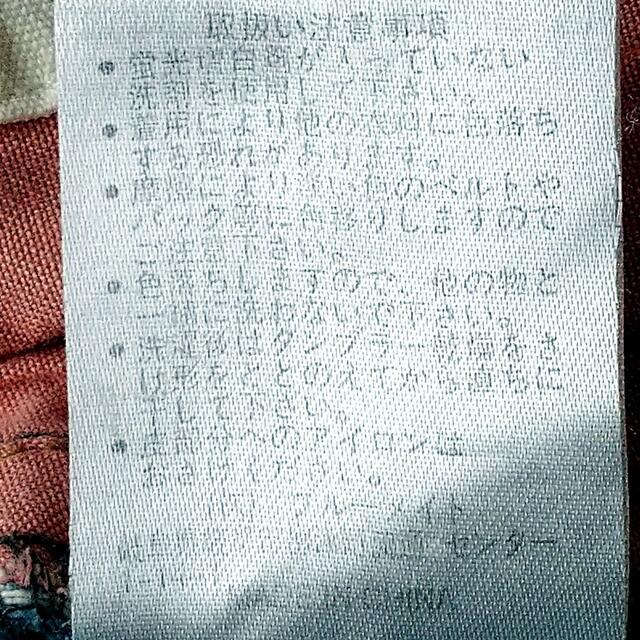 取扱い注意事項
● 蛍光増白剤が入っていない
洗剤を使用して下さい。
● 着用により他の衣料に色落ち
する恐れがあります。
● 摩擦により淡い色のベルトや
バック等に色移りしますので
ご注意下さい。
● 色落ちしますので、他の物と
一緒に洗わないで下さい。
● 洗濯後はタンブラー乾燥をさ
け形をととのえてから直ちに
干して下さい。
● 皮部分へのアイロンは
お避けください。
ブルーメイト
センター
MADE IN CHINA